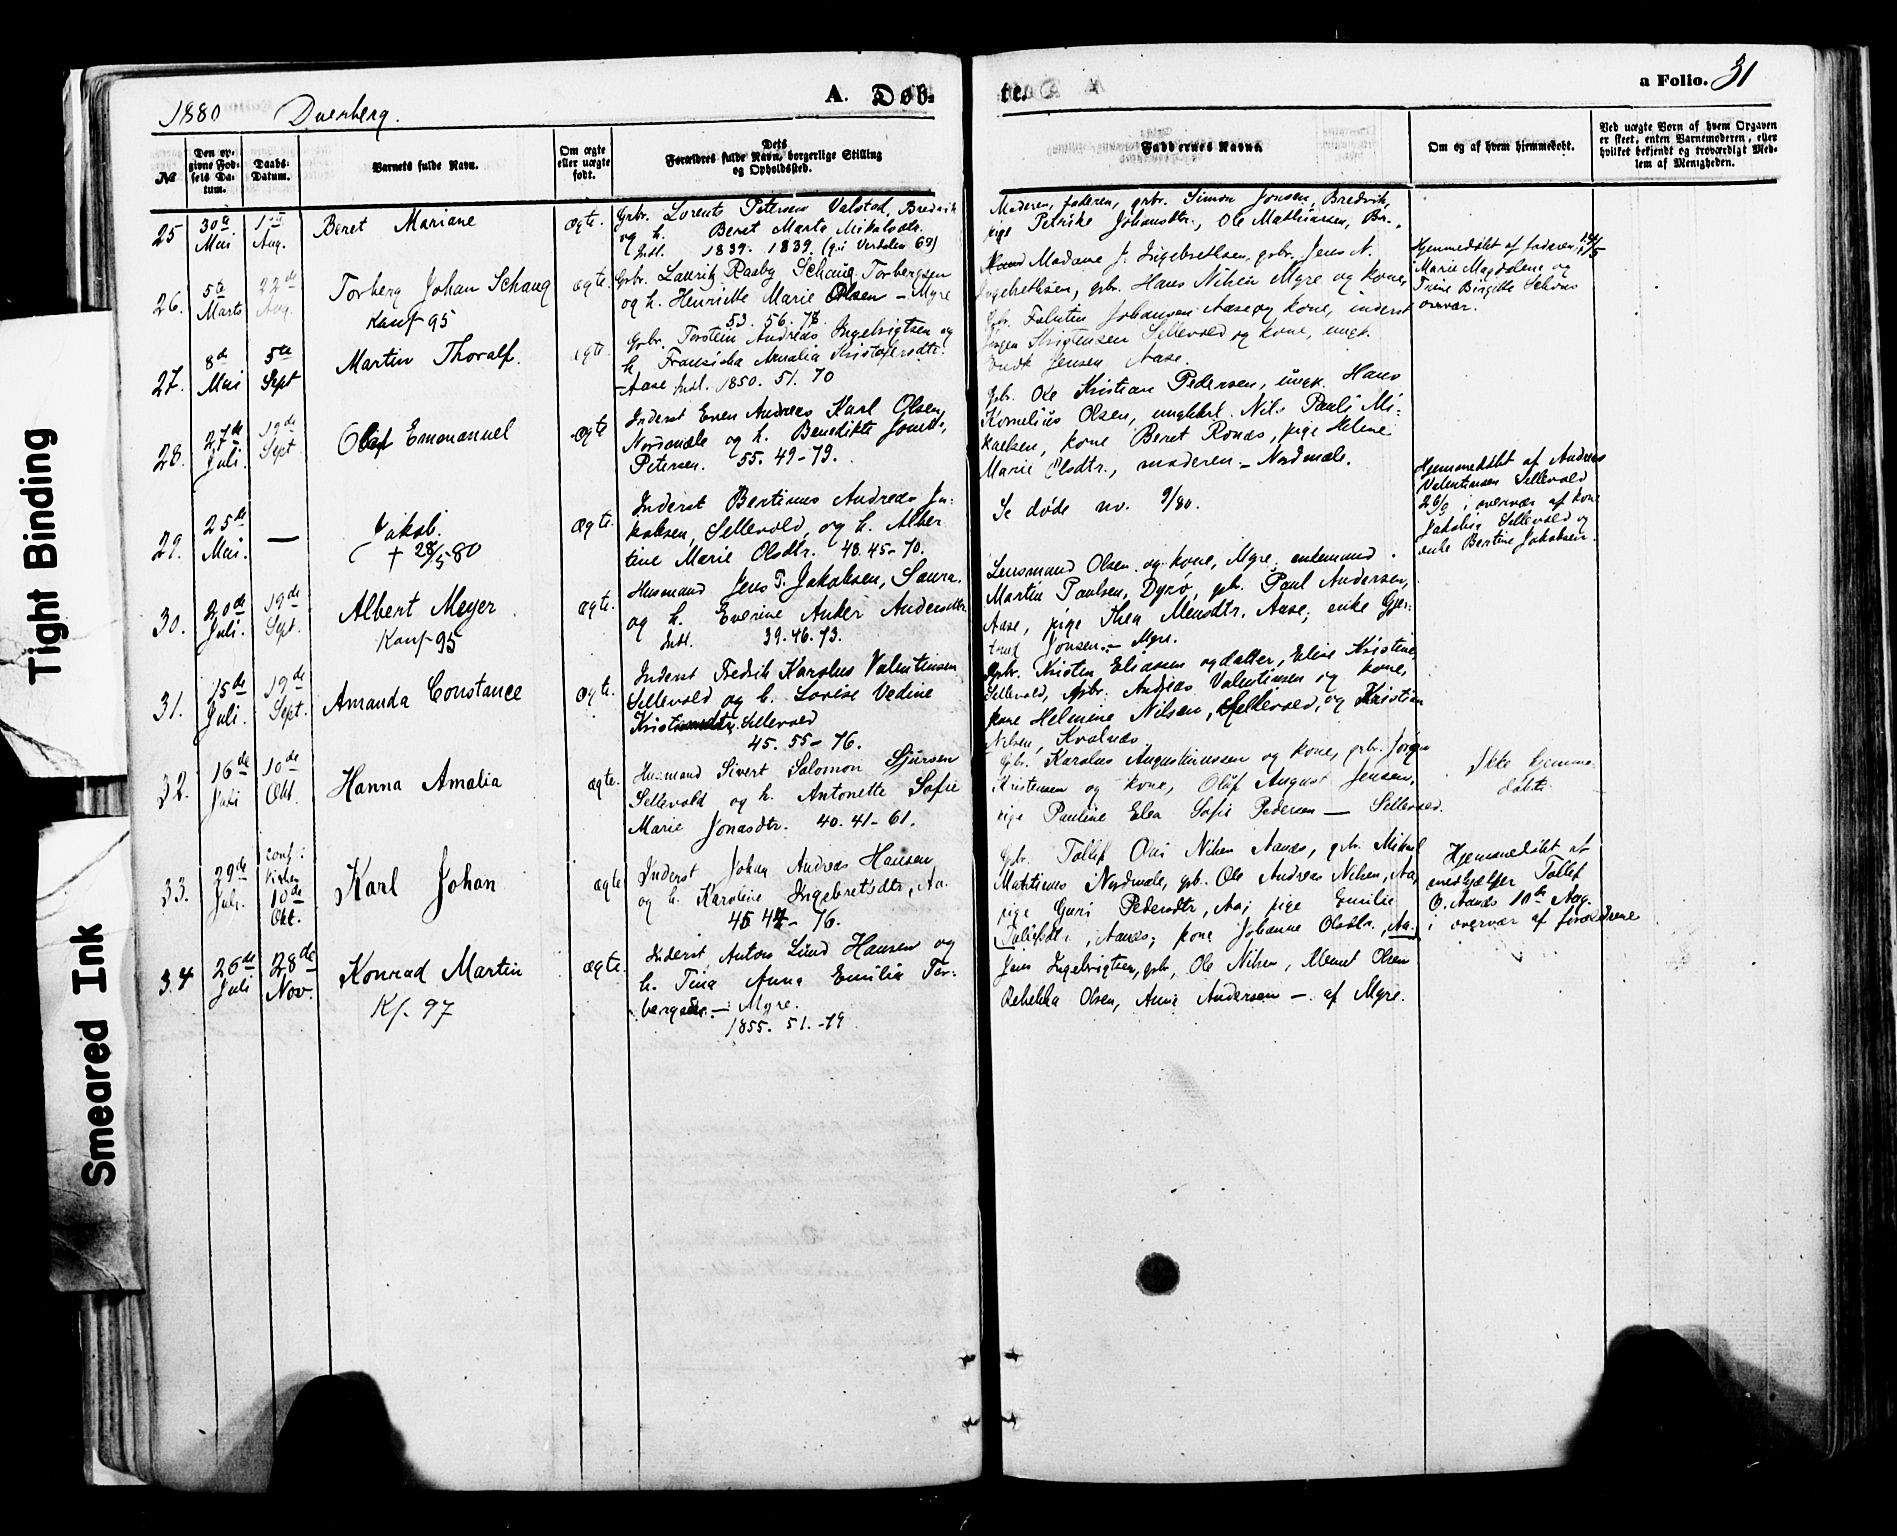 Tight Binding
Smeared Ink
1880 Dverberg.
A. Døb-
te.
a Folio. 31
№
Den opgivne Fødsels Datum.
Daabs-Datum.
Barnets fulde Navn.
Om ægte eller uægte født.
Dets Forældres fulde Navn, borgerlige Stilling og Opholdssted.
Faddernes Navne.
Om og af hvem hjemmedøbt.
Ved uægte Børn af hvem Opgaven er skeet, enten Barnemoderen, eller hvilket bekjendt og troværdigt Medlem af Menigheden.
25 30te Mai 1ste Aug. Beret Mariane ægte.
Gbr. Lorents Petersen Valstad, Bredvik
og h. Beret Marta Mikalsdtr.
Indl. 1839. 1839. (gi. Verdalen 69)
Moderen, faderen, gbr. Simon Jonsen, Bredvik,
pige Petrike Johansdtr., Ole Mathiasen, Br.
26. 5te Marts 22de Aug. Torberg Johan Schang ægte.
Konf 95
Gbr. Lauritz Raaby Schang Torbergsen
og h. Henriette Marie Olsen - Myre
53. 56. 78
Madame J. Ingebrethsen, gbr. Jens N.
Ingebrethsen, gbr. Hans Nilsen Myre og kone,
Hjemmedøbt af faderen
Marie Magdalene og
Trine Birgitte
overvar.
27. 8de Mai 5te Sept Martin Thoralf. ægte.
Gbr. Torstein Andreas Ingebrigtsen og
h. Fransiska Amalia Kristofersdtr.
- Aase Indl. 1850. 51. 70
Gbr. Falentin Johansen Aase og kone, inderst
Jørgen Kristensen Sellevold og kone, ungk.
Jensen Aase.
28. 27de Juli. 19de Sept Olaf Emmanuel ægte
Inderst Even Andreas Karl Olsen,
Nordmæle og h. Benedikte
Petersen. 55. 49-79.
gbr. Ole Kristian Pedersen, ungk. Hans
Kornelius Olsen, ungkarl Nils Pauli Mi-
kaelsen, kone Beret Rones, pige Helene
Marie Olsdtr., moderen - Nordmæle.
29. 25de Mai. — Jakob. ægte.
+ 28/5-80
Inderst Bertinus Andreas Ja-
kobsen, Sellevold, og h. Alber
tine Marie Olsdtr. 48. 45-70.
Se døde no. 9/80.
Hjemmedøbt af Andreas
Valentinsen Sellevold
26/5 i overvær af kone
Jakobia Sellevold og
enke Bertine Jakobsen.
30. 20de Juli. 19de Sept. Albert Meyer ægte.
Konf 95
Husmand Jens P. Jakobsen, Saura.
og h. Everine Anker Andersdtr
Indl. 39. 46. 73.
Lensmand Olsen og kone, Myre, enkemand
Martin Paulsen, Dyrø, gbr. Paul Andersen,
Aase, pige Thea Monsdtr. Aase, enke Gjer-
trud Jonsen - Myre.
31. 15de Juli. 19de Sept. Amanda Constance ægte.
Inderst Fredrik Karolus Valentinsen
Sellevold og h. Lovise Vedine
Sellevold
45. 55- 76.
gbr. Kristen Eliasen og datter, Eline Kristine
Sellevold, gbr. Andreas Valentinsen og kone,
kone Helmine Nilsen, Sellevold, og Kristian
Nilsen, Kvalnes
32. 16de Juli 10de Okt. Hanna Amalia ægte.
Husmand Sivert Salomon Sjursen
Sellevold og h. Antonette Sofie
Marie Jonasdtr. 40. 41- 61.
Gbr. Karolus Augustinussen og kone, gbr. Jørgen
Kristensen og kone, Oluf August Jensen,
pige Pauline Elea Sofie Pedersen — Sellevold.
Ikke hjemme
døbt
33. 29de Juli. conf: kirken 10de Okt. Karl Johan ægte
Inderst Johan Andreas Hansen
og h. Karoline Ingebretsdtr, Aa.
45 - 76.
Gbr. Tollef Nilsen Aanes, gbr. Mikal
Martinus Nordmæle, gbr. Ole Andreas Nilsen, Aa,
pige Guri Pedersdtr, Aa; pige Emilie
Tollefsdtr., Aanes; kone Johanne Olsdtr., Aa.
Hjemmedøbt af
medhjælper Tollef
O. Aanes 10de Aug.
i overvær af forældrene
34 26de Juli 28de Nov. Konrad Martin ægte.
Kf. 97
Inderst Anton Lund Hansen og
h. Tina Anna Emilia Tor-
bergsdtr. — Myre.
1855. 51. -79
Jens Ingebrigtsen, gbr, Ole Nilsen, Klemet Olsen
Rebekka Olsen, Anna Andersen — af Myre.